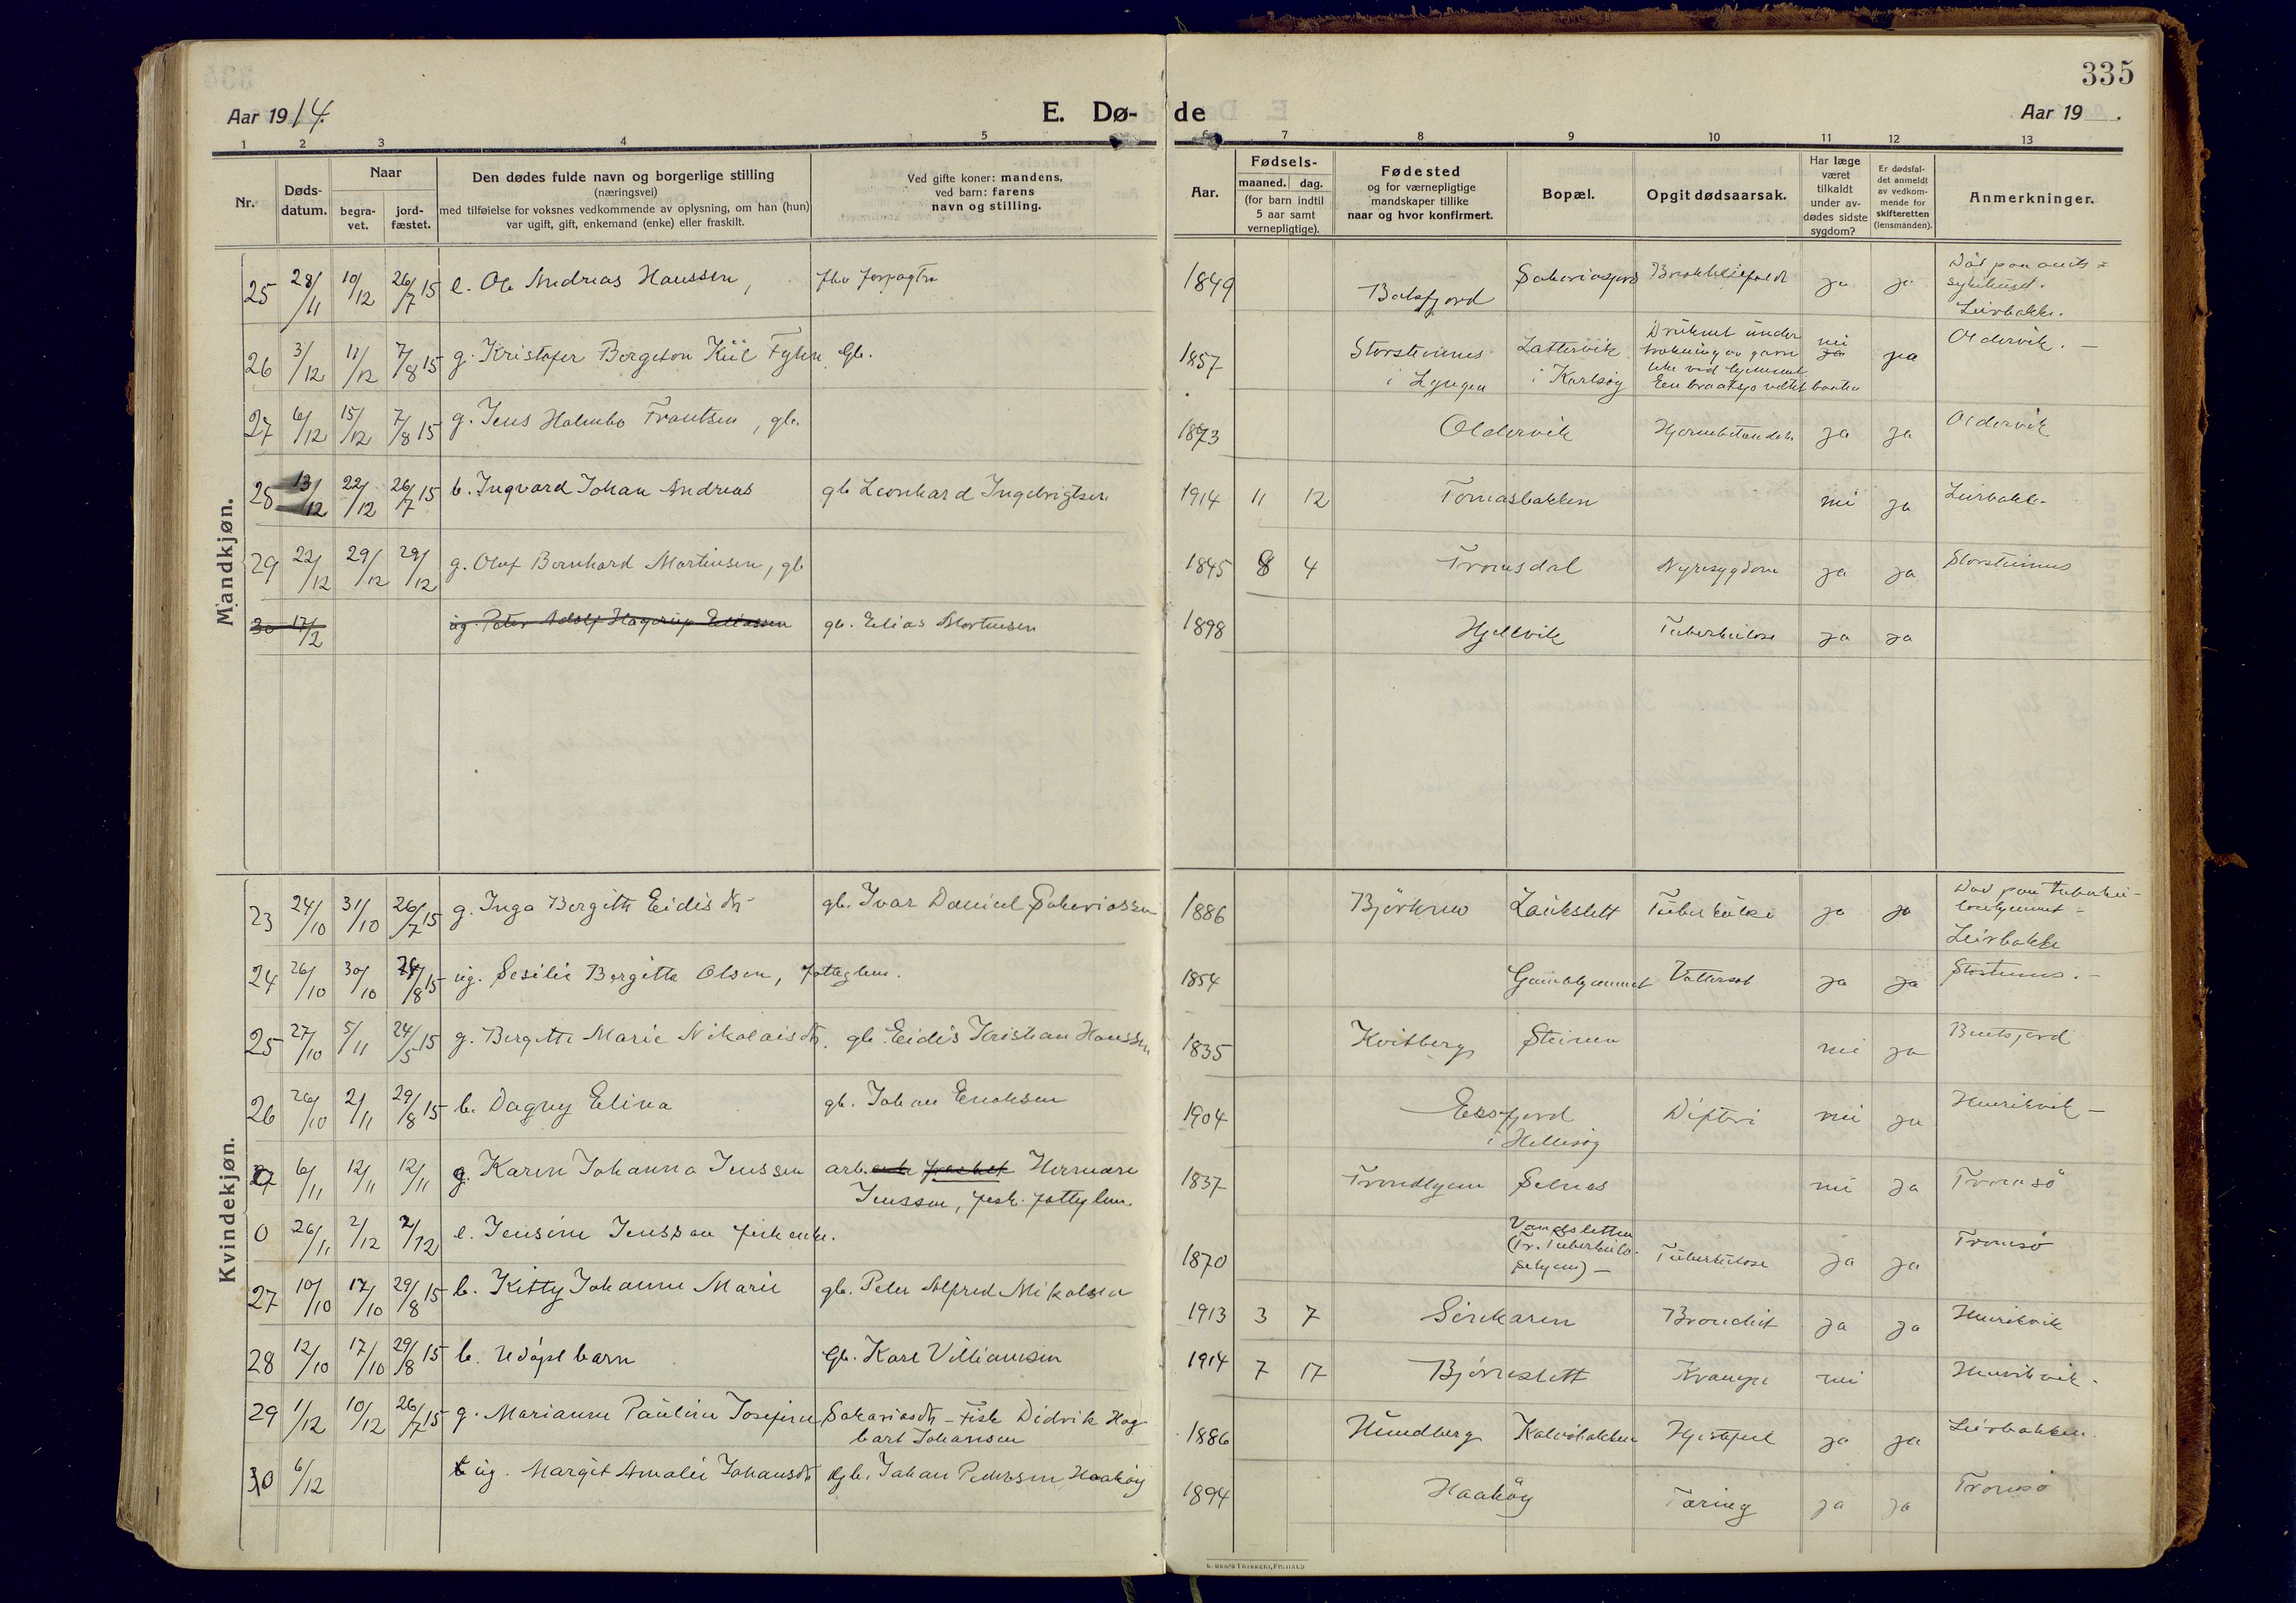 335
Aar 1914. E. Dø- de Aar 19 .
1 2 3 4 5 6 7 8 9 10 11 12 13
Nr. Døds-datum. Naar begra-vet. jord-fæstet.
Den dødes fulde navn og borgerlige stilling
(næringsvei)
med tilføielse for voksnes vedkommende av oplysning, om han (hun)
var ugift, gift, enkemand (enke) eller fraskilt.
Ved gifte koner: mandens,
ved barn: farens
navn og stilling.
Aar.
Fødsels-
maaned. dag.
(for barn indtil
5 aar samt
vernepligtige).
Fødested
og for værnepligtige
mandskaper tillike
naar og hvor konfirmert.
Bopæl.
Opgit dødsaarsak.
Har læge
været
tilkaldt
under av-
dødes sidste
sygdom?
Er dødsfal-
det anmeldt
av vedkom-
mende for
skifteretten
(lensmanden).
Anmerkninger.
Mandkjøn.
25 28/11 10/12 26/7 15 e. Ole Andreas Hanssen, 1849 Balsfjord ja ja
Leirbakke.
26 3/12 11/12 7/8 15 g. Kristofer Bergeton Kiil Fyhn Gb. 1857 Storstennes i Lyngen Lattervik i Karlsøy Druknet under nei ja ja Oldervik.
27 6/12 15/12 7/8 15 g. Jens Holmbo Frantsen, gb. 1873 Oldervik ja ja Oldervik
28 13/12 22/12 26/7 15 b. Ingvard Johan Andreas gb Leonhard Ingebrigtsen 1914 11 12 Tomasbakken nei ja Leirbakk-
29 22/12 29/12 29/12 g. Oluf Bernhard Martinsen, gb 1845 8 4 Tromsdal Nyresygdom ja ja Storstennes
30 17/2 ug. Peter Adolf Hagerup Eliassen gb. Elias Mortensen 1898 Hjellvik Tuberkulose ja ja
Kvindekjøn.
23 24/10 31/10 26/7 15 g. Inga Bergitte Eidisdtr gb. Ivar Daniel Sakariassen 1886 Laukslett Tuberkulose ja ja Død paa tuberku-
losehjemmet -
Leirbakke
24 26/10 30/10 15 ug. Sesilie Bergitte Olsen, fatteglem. 1854 Gamlehjemmet Vattersot ja ja Storstennes.
25 27/10 5/11 24/5 15 g. Bergitte Marie Nikolaisdtr. gb. Eidis Kristian Hanssen 1835 Kvitberg Steinen nei ja Bentsjord
26 26/10 2/11 29/8 15 b. Dagny Elina gb. Johan Enoksen 1904 Ersfjord Difteri nei ja Henrikvik -
i Hillesøy
27 6/11 12/11 12/11 g. Karen Johanna Jenssen arb. Hermann 1837 Trondhjem Selnes nei ja Tromsø
Jenssen, fattiglem.
0 26/11 2/12 2/12 e. Jensine Jenssen fiskenke. 1870 Tuberkulose ja ja Tromsø
27 10/10 17/10 29/8 15 b. Kitty Johanne Marie gb. Peter Alfred Mikalsen 1913 3 7 Bronchit ja ja Henrikvik
28 12/10 17/10 29/8 15 b. Udøpt barn Gb. Karl Villiamsen 1914 7 17 Bjørneslett Krampe nei Henrikvik.
29 1/12 10/12 26/7 15 g. Marianne Pauline Josefine Sakariasdtr - Fisk Didrik Hag
bart Johansen 1886 Hundberg Kalvebakken Hjertefeil ja ja Leirbakken.
30 6/12 ug. Margit Amalie Johansdtr Gb. Johan Pedersen Haakøy 1894 Haakøy Tæring ja ja Tromsø